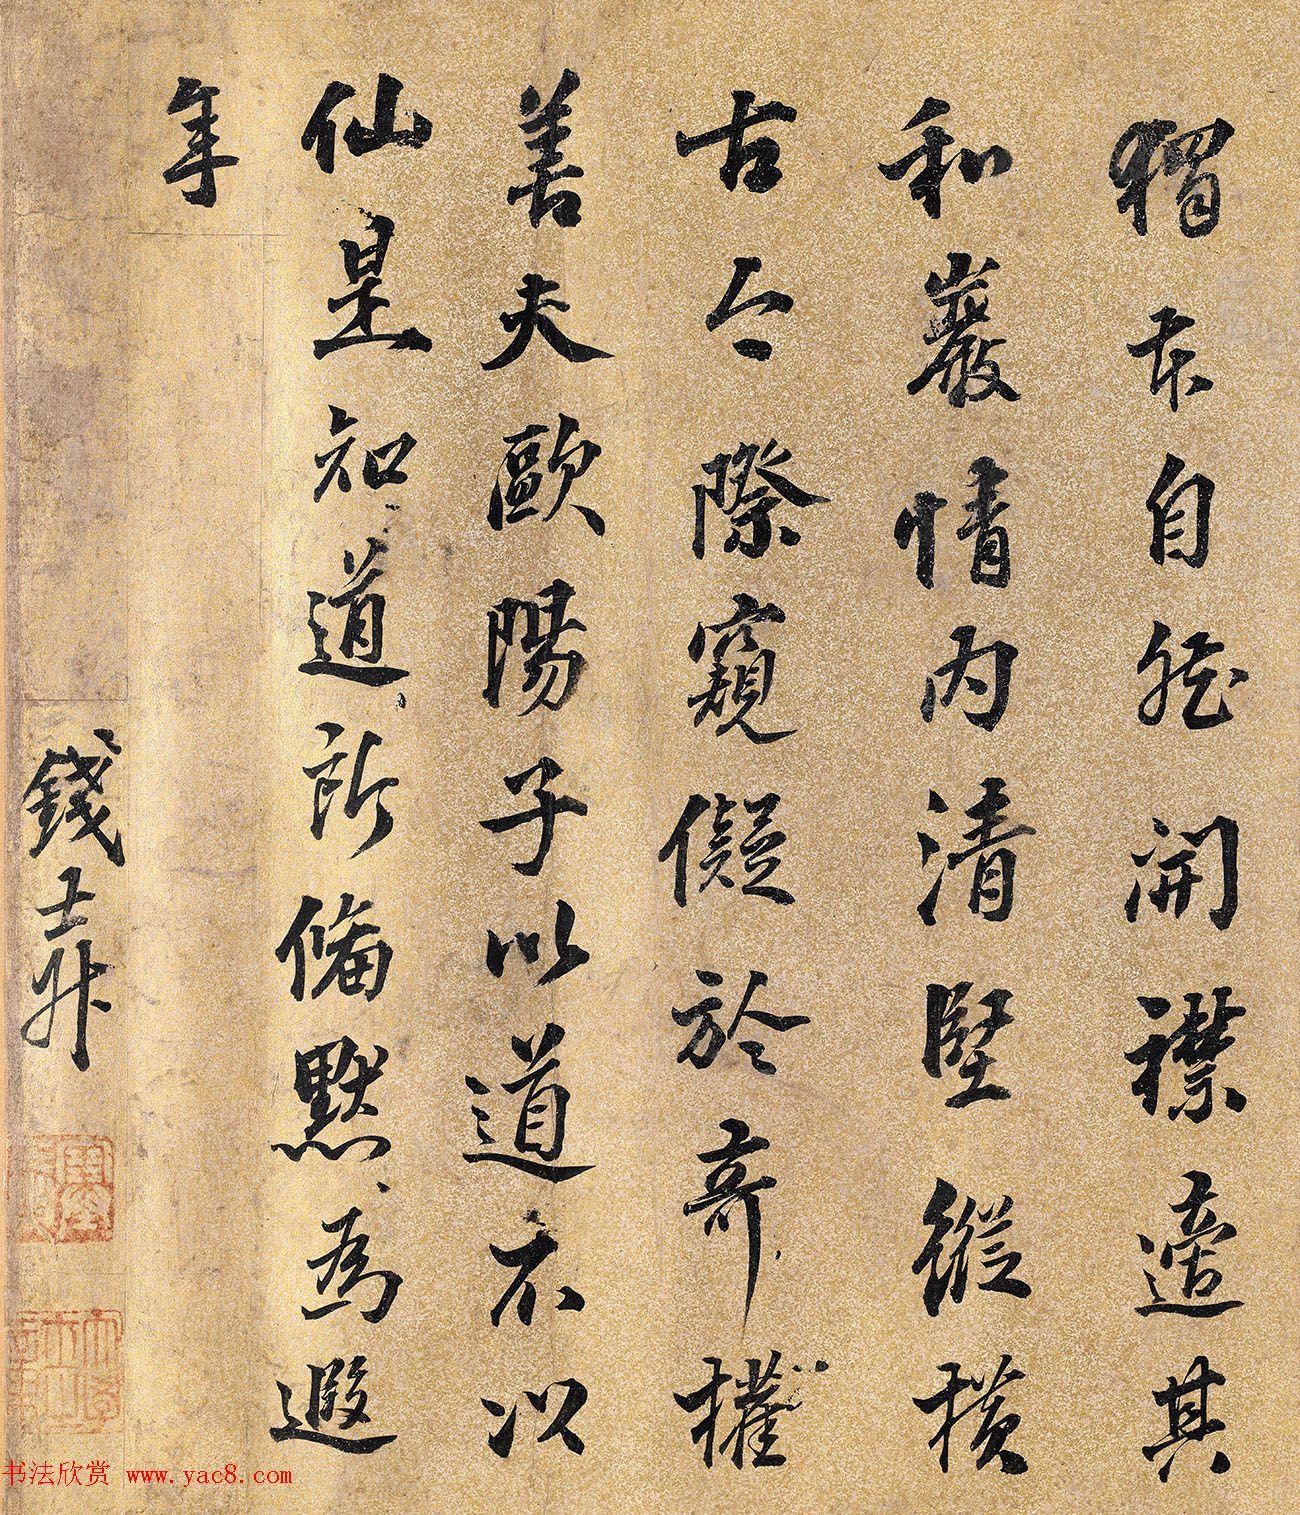 獨本自然開襟適其
和巖情內清堅縱横
古今際窺儗於奇權
善夫歐陽子以道不以
仙是知道所偹默為遐
年
錢士升
书法欣赏 www.yac8.com